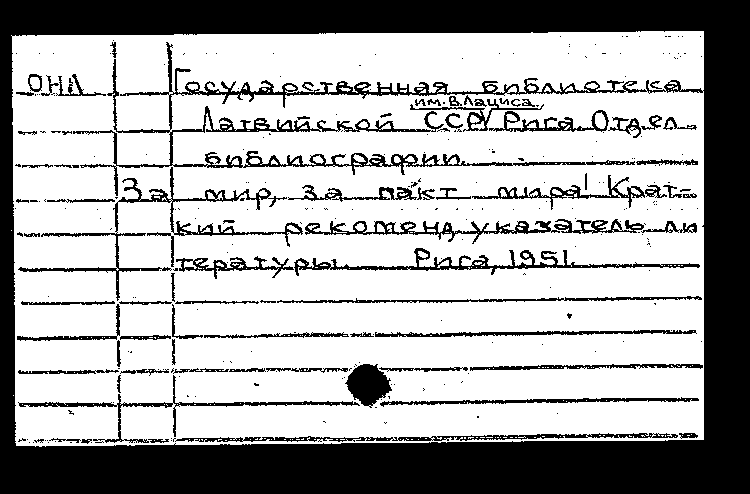 ОНЛ Государственная библиотека
им. В. Лациса,
Латвийской ССР Рига. Отдел
библиографии.
За мир, за пакт мира! Крат-
кий рекоменд. указатель ли
тературы. Рига, 1951.